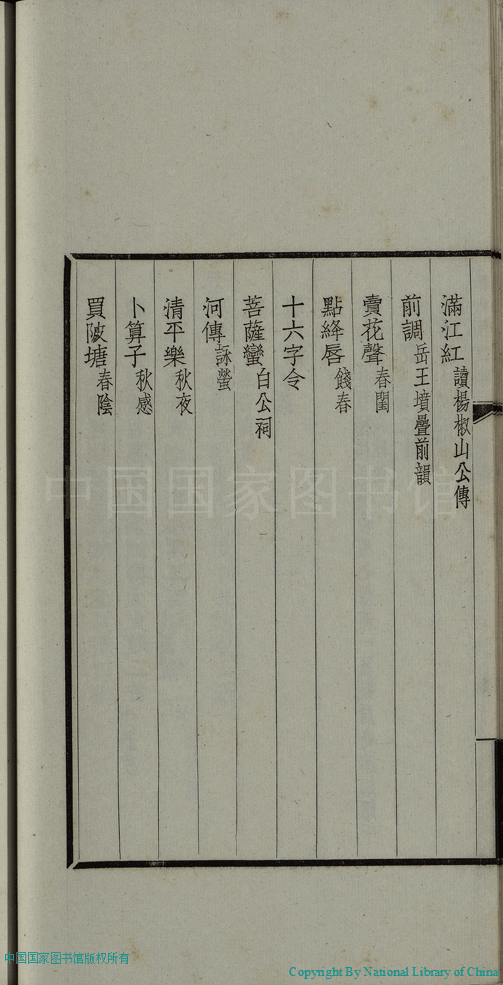 滿江紅讀楊椒山公傳
前調岳王墳疊前韻
賣花聲春閨
點絳唇餞春
十六字令
菩薩蠻白公祠
河傳詠螢
清平樂秋夜
卜算子秋感
買陂塘春陰
中国国家图书馆
中国国家图书馆版权所有
Copyright By National Library of China